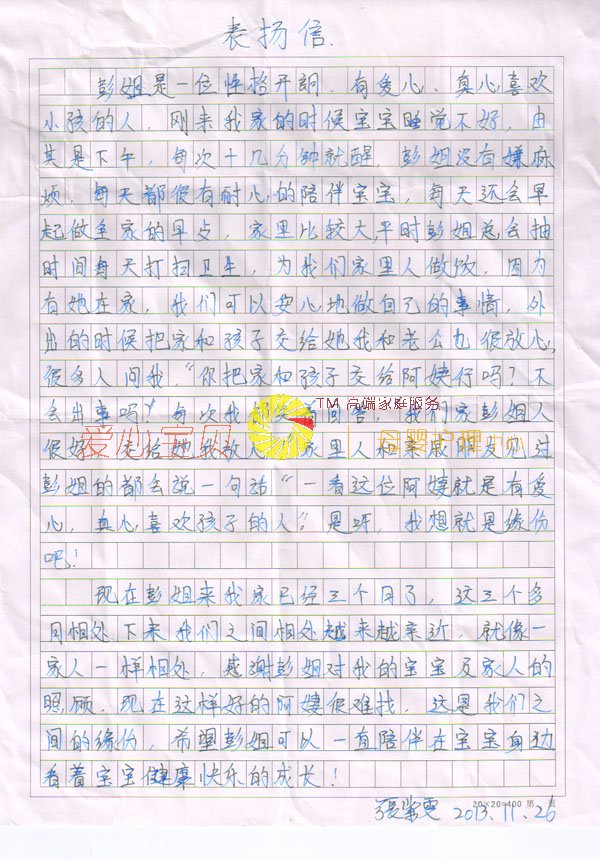 表扬信.
彭姐是一位性格开朗、有爱心、真心喜欢
小孩的人，刚来我家的时候宝宝睡觉不好，由
其是下午，每次十几分钟就醒，彭姐没有嫌麻
烦，每天都很有耐心的陪伴宝宝，每天还会早
起做全家的早点，家里比较大，平时彭姐总会抽
时间每天打扫卫生，为我们家里人做饭，因为
有她在家，我们可以安心地做自己的事情，外
出的时候把家和孩子交给她我和老公也很放心，
很多人问我“你把家和孩子交给阿姨行吗？不
会出事吗？”每次我都会有回答，我们家彭姐人
TM 高端家庭服务
爱心宝贝
母婴护理
很好，交给她我放心，家里人和亲戚朋友见过
彭姐的都会说一句话“一看这位阿姨就是有爱
心，真心喜欢孩子的人”是呀，我想就是缘份
吧！
现在彭姐来我家已经三个月了，这三个多
月相处下来我们之间相处越来越亲近，就像一
家人一样相处，感谢彭姐对我的宝宝及家人的
照顾，现在这样好的阿姨很难找，这是我们之
间的缘份，希望彭姐可以一直陪伴在宝宝身边
看着宝宝健康快乐的成长！
20×20=400 第 页
2013.11.26